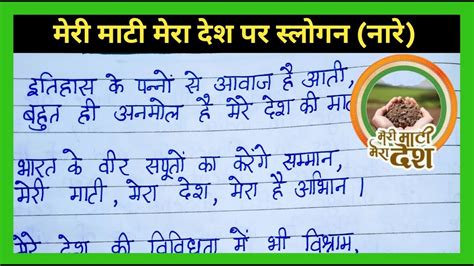 मेरी माटी मेरा देश पर स्लोगन (नारे)
इतिहास के पन्नों से आवाज है आती,
बहुत ही अनमोल है मेरे देश की
भारत के वीर सपूतों का करेंगे सम्मान,
मेरी माटी, मेरा देश, मेरा है अभिान।
मेरे देश की विविधता में भी विश्राम,
मेरी माटी
मेरा देश